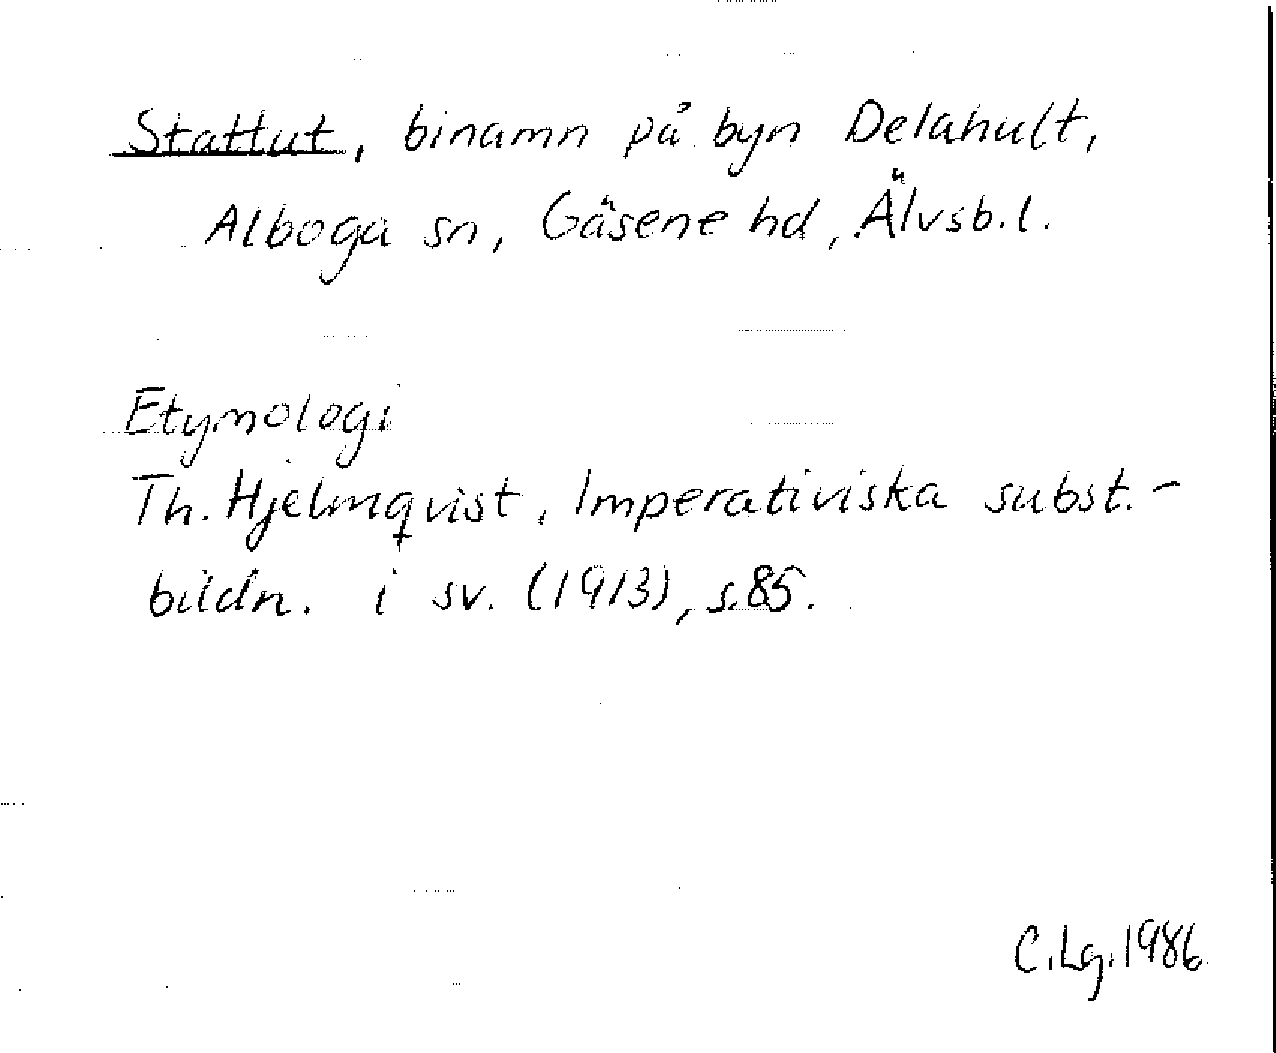 Stattut, binamn på byn Delahult,
Alboga sn, Gäsene hd, Älvsb.l.
Etymologi
Th. Hjelmqvist, Imperativiska subst.-
bildn. i sv. (1913), s.85.
C.Lg.1986